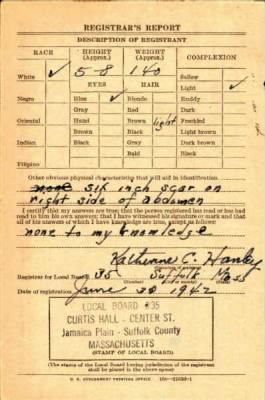 REGISTRAR'S REPORT
DESCRIPTION OF REGISTRANT
RACE
HEIGHT (Approx.)
WEIGHT (Approx.)
COMPLEXION
White ✓ 5-8 140 Sallow
EYES HAIR Light ✓
Negro Blue ✓ Blonde Ruddy
Gray Red Dark
Oriental Hazel Brown light Freckled
Brown Black Light brown
Indian Black Gray Dark brown
Bald Black
Filipino
Other obvious physical characteristics that will aid in identification
none six inch scar on
right side of abdomen
I certify that my answers are true; that the person registered has read or has had
read to him his own answers; that I have witnessed his signature or mark and that
all of his answers of which I have knowledge are true, except as follows:
none to my knowledge
Katherine C. Hanley
Registrar for Local Board 35 Suffolk Mass
Date of registration June 30 1942
LOCAL BOARD #35
CURTIS HALL - CENTER ST.
Jamaica Plain - Suffolk County
MASSACHUSETTS
(STAMP OF LOCAL BOARD)
(The stamp of the Local Board having jurisdiction of the registrant
shall be placed in the above space.)
U. S. GOVERNMENT PRINTING OFFICE